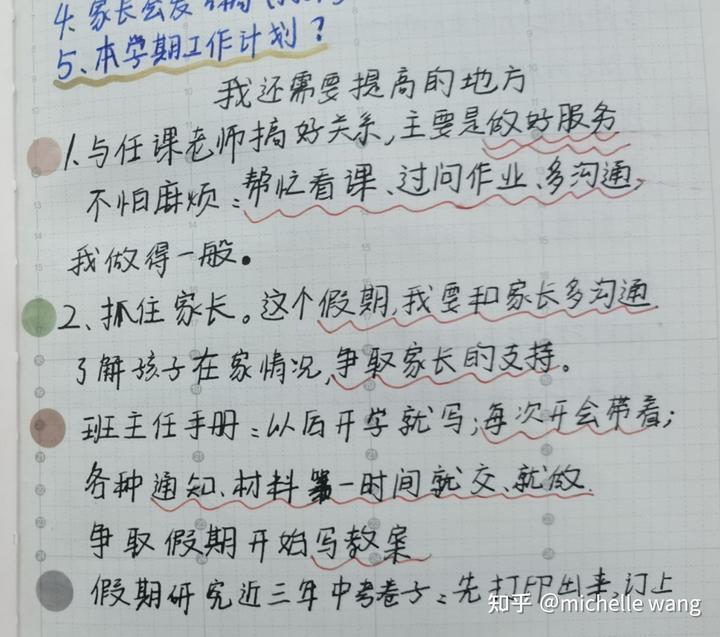 4、家长会发
5、本学期工作计划?
我还需要提高的地方
1、与任课老师搞好关系,主要是做好服务
不怕麻烦:帮忙看课、过问作业、多沟通,
我做得一般。
2、抓住家长。这个假期,我要和家长多沟通
了解孩子在家情况,争取家长的支持。
班主任手册:以后开学就写;每次开会带着;
各种通知、材料第一时间就交、就做.
争取假期开始写教案
假期研究近三年中考卷子:先打印出来,订上
知乎 @michelle wang